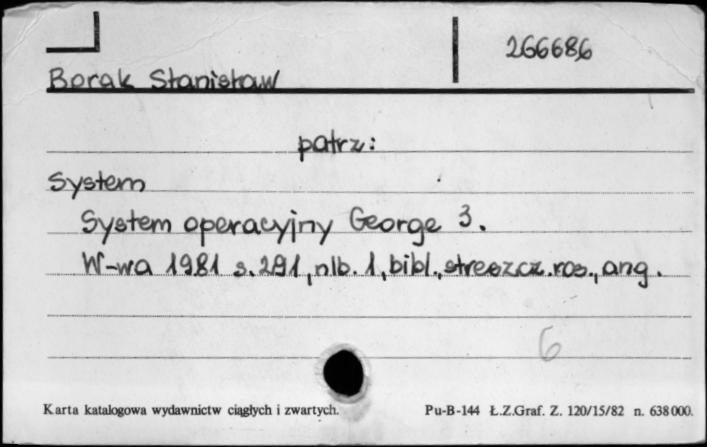 266686
Borak Stanisław
patrz:
System
System operacyjny George 3.
W-wa 1981 s. 291, nlb. 1, bibl., streszcz. ros., ang.
6
Karta katalogowa wydawnictw ciągłych i zwartych.
Pu-B-144 Ł.Z.Graf. Z. 120/15/82 n. 638000.